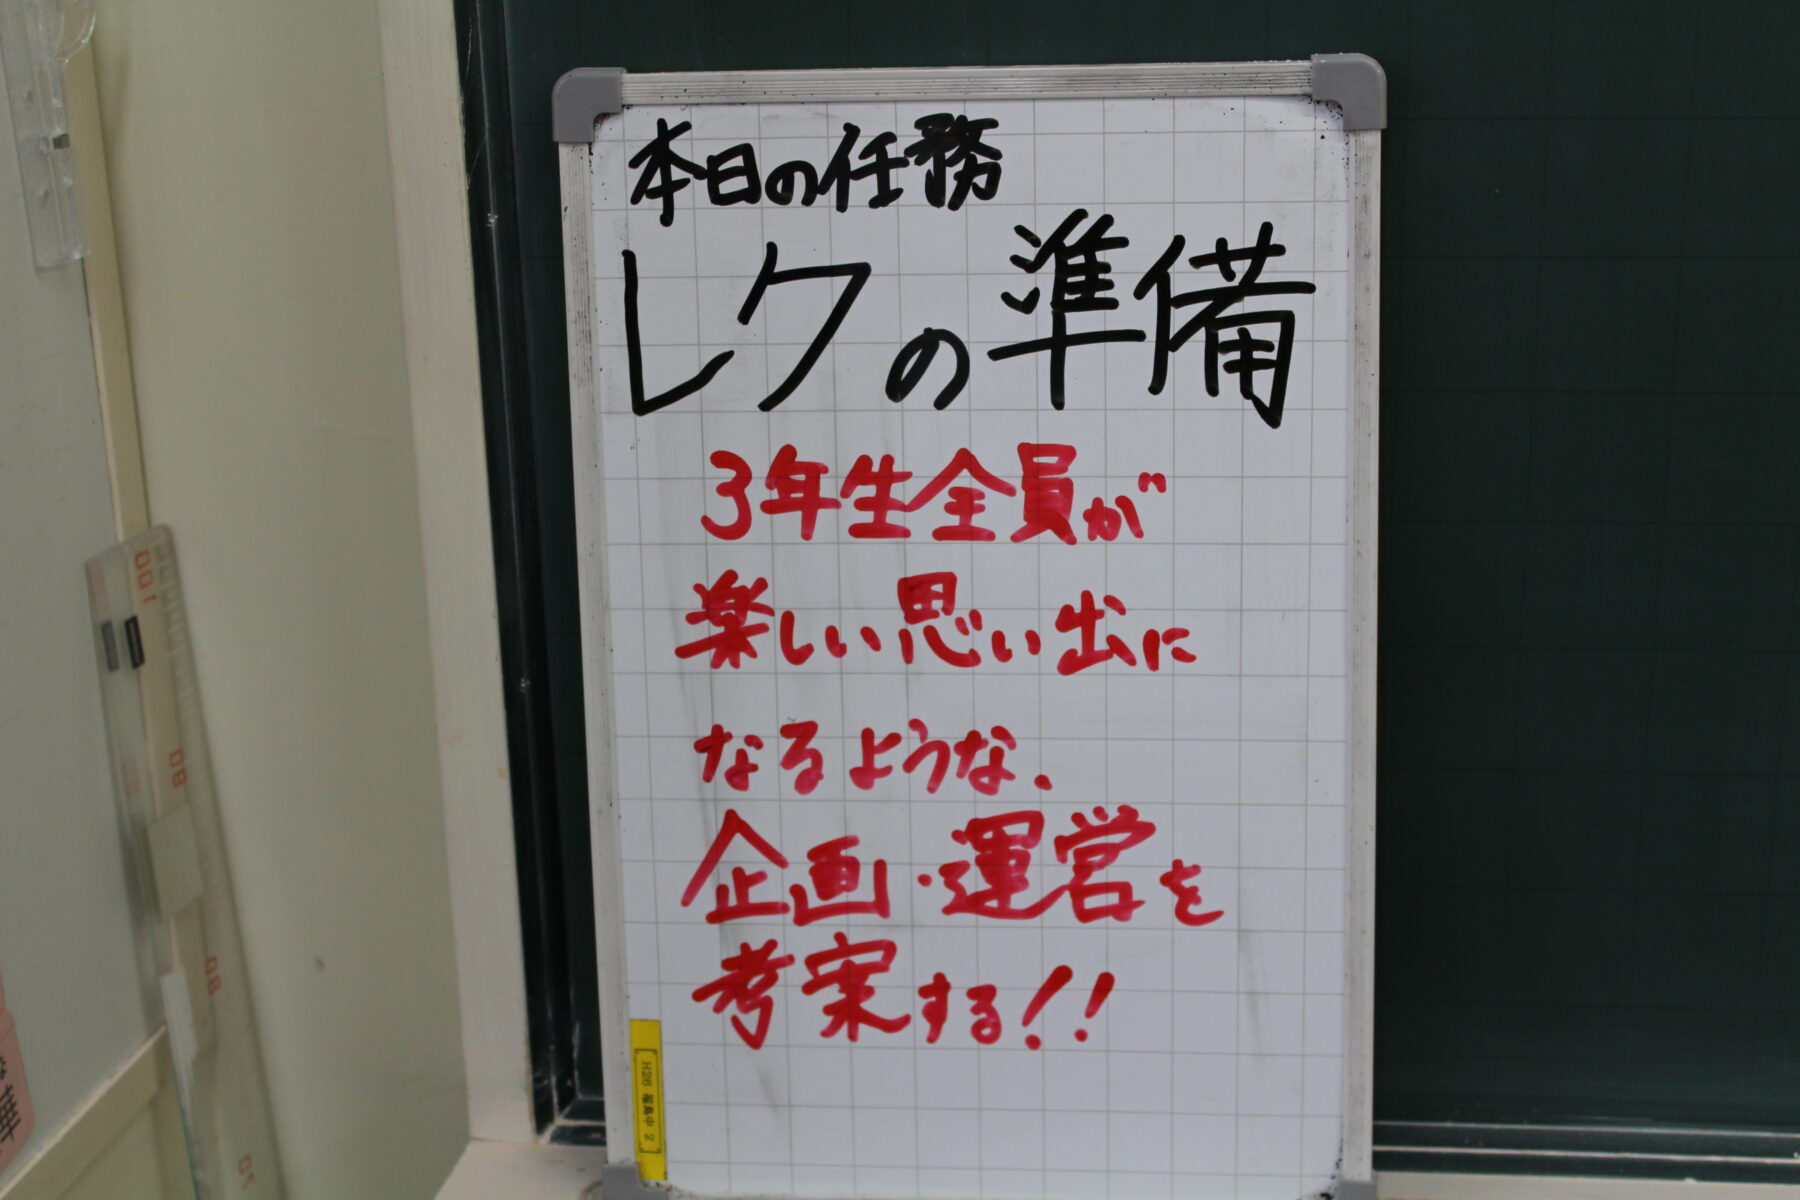 本日の任務
レクの準備
3年生全員が
楽しい思い出に
なるような、
企画・運営を
考案する!!
H26 福島中 2
100
90
80
70